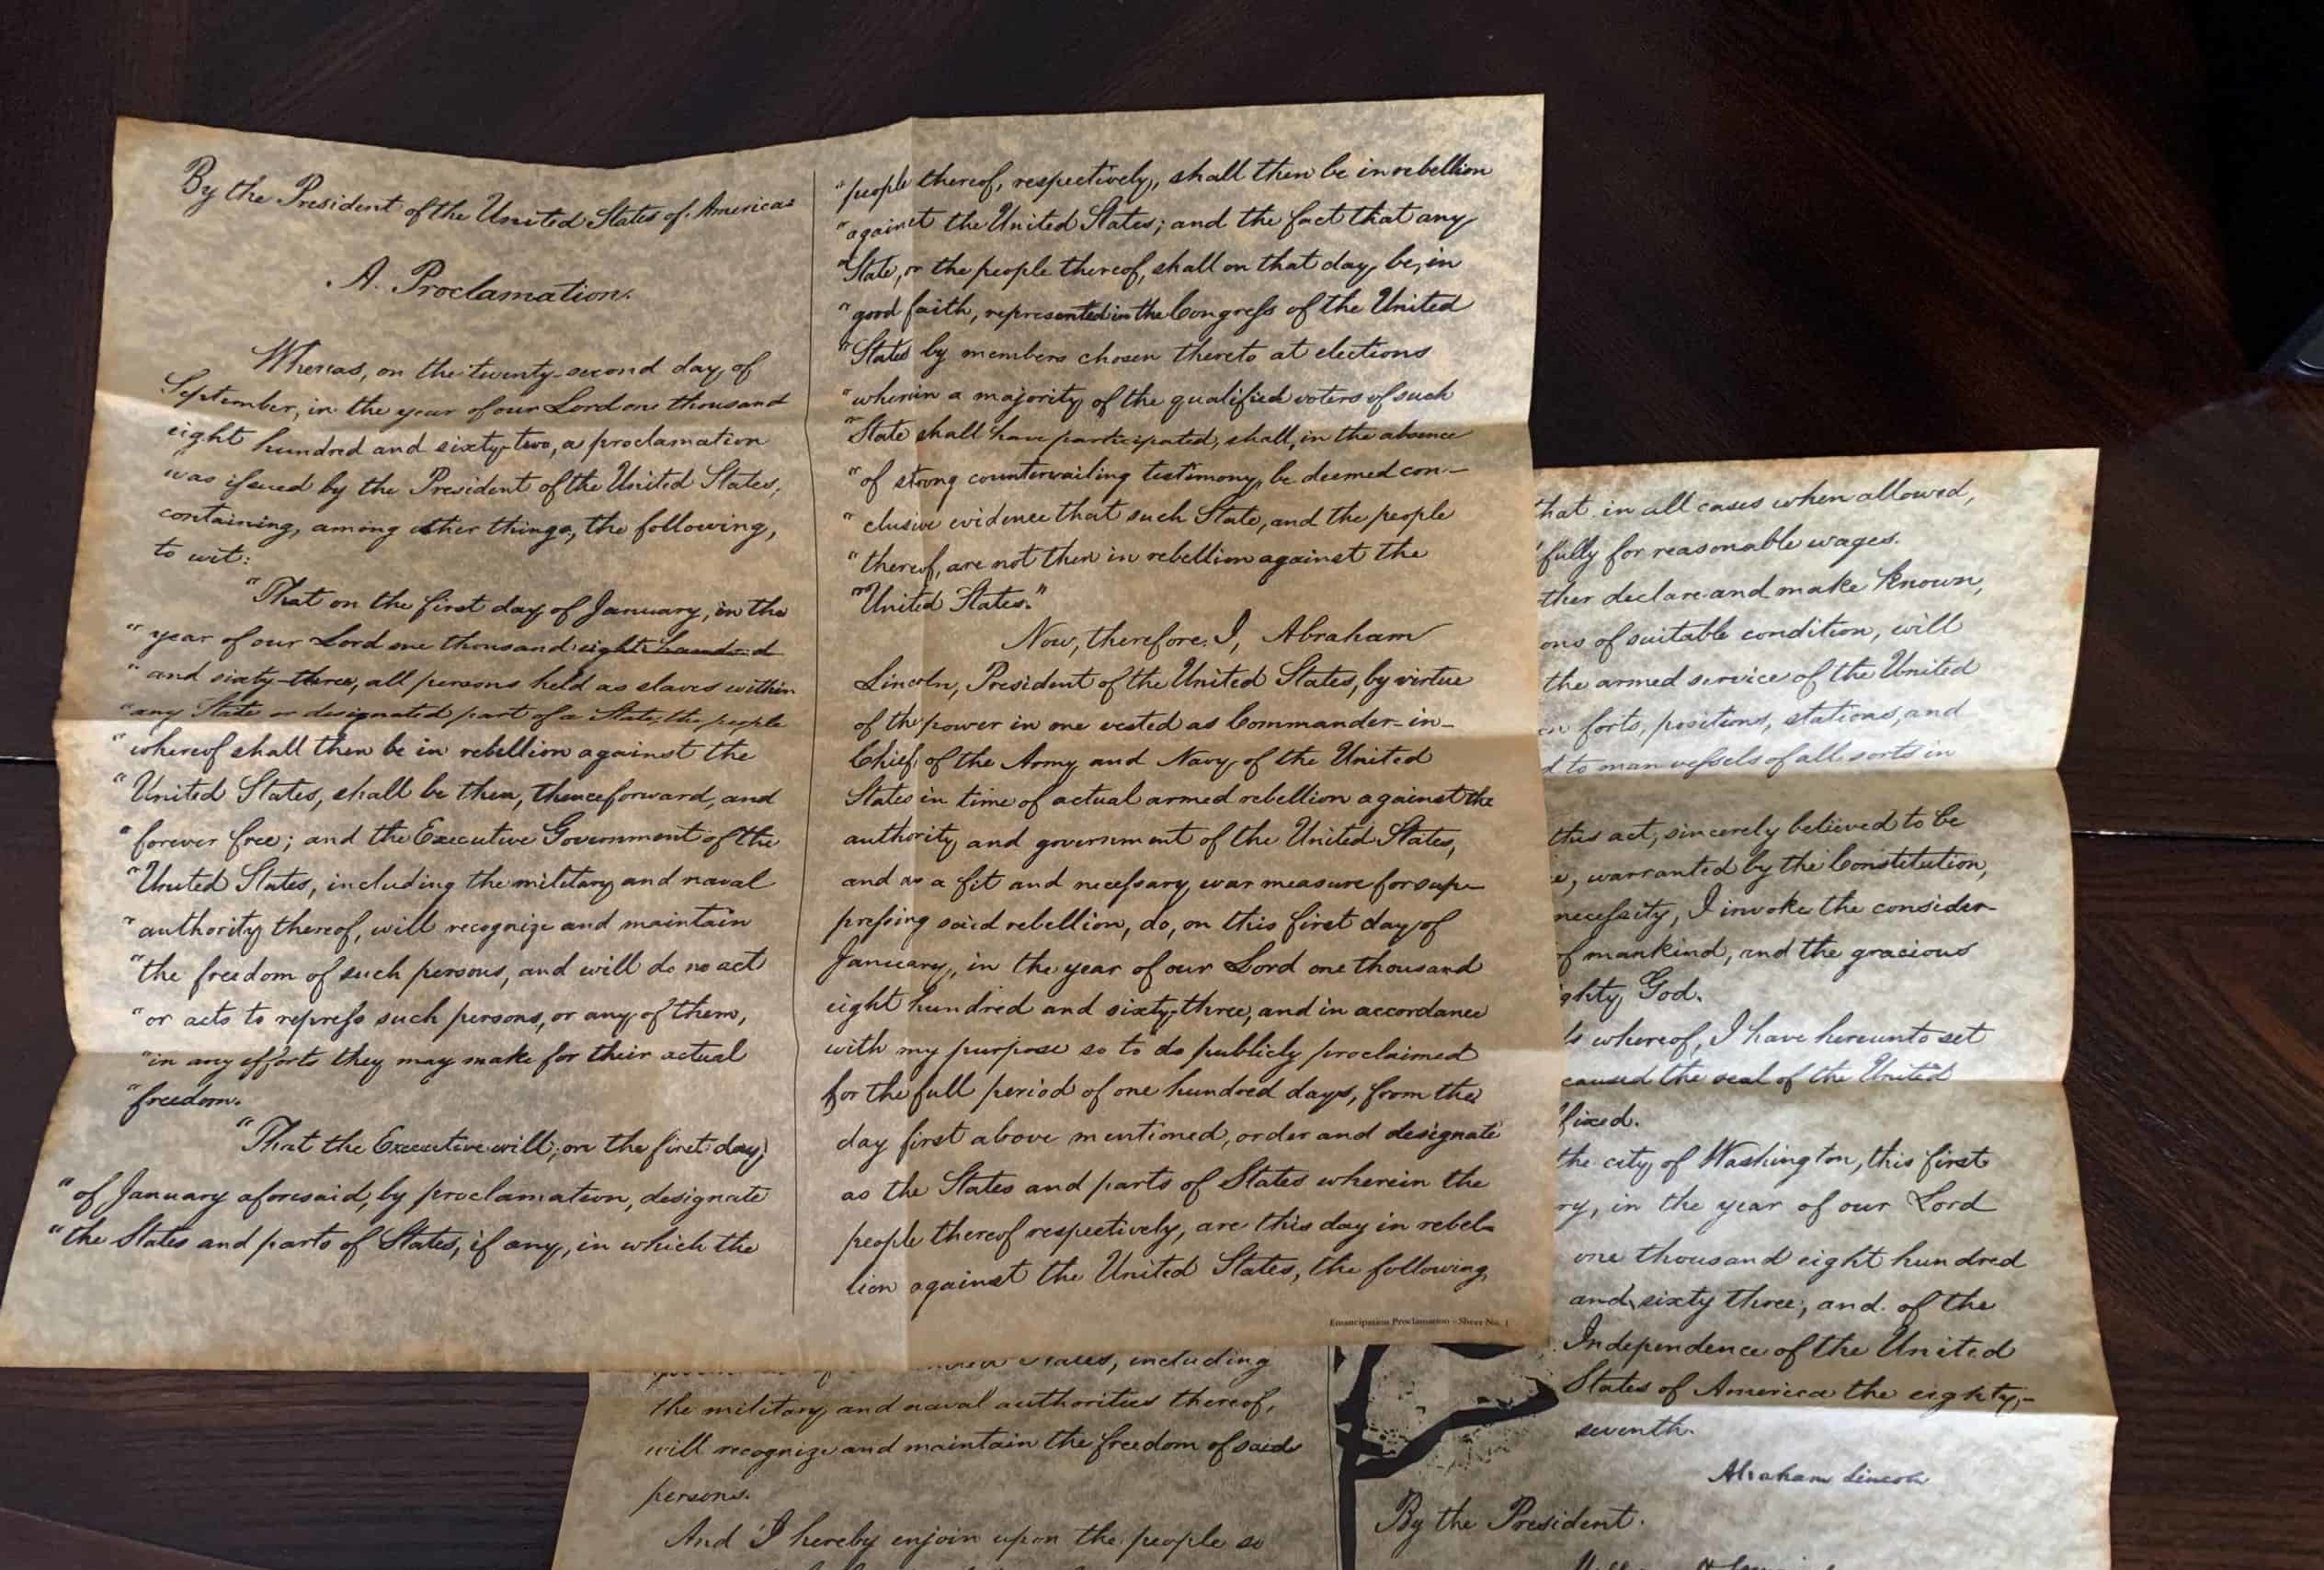 By the President of the United States of America:
A. Proclamation.
Whereas, on the twenty-second day of
September, in the year of our Lord one thousand
eight hundred and sixty-two, a proclamation
was issued by the President of the United States,
containing, among other things, the following,
to wit:
"That on the first day of January, in the
"year of our Lord one thousand eight hundred
"and sixty-three, all persons held as slaves within
"any State or designated part of a State, the people
"whereof shall then be in rebellion against the
"United States, shall be then, thenceforward, and
"forever free; and the Executive Government of the
"United States, including the military and naval
"authority thereof, will recognize and maintain
"the freedom of such persons, and will do no act
"or acts to repress such persons, or any of them,
"in any efforts they may make for their actual
"freedom.
"That the Executive will, on the first day
"of January aforesaid, by proclamation, designate
"the States and parts of States, if any, in which the
"people thereof, respectively, shall then be in rebellion
"against the United States; and the fact that any
"State, or the people thereof, shall on that day, be, in
"good faith, represented in the Congress of the United
"States by members chosen thereto at elections
"wherein a majority of the qualified voters of such
"State shall have participated, shall, in the absence
"of strong countervailing testimony, be deemed con-
"clusive evidence that such State, and the people
"thereof, are not then in rebellion against the
"United States."
Now, therefore, I, Abraham
Lincoln, President of the United States, by virtue
of the power in me vested as Commander-in-
Chief, of the Army and Navy of the United
States in time of actual armed rebellion against the
authority and government of the United States,
and as a fit and necessary war measure for sup-
pressing said rebellion, do, on this first day of
January, in the year of our Lord one thousand
eight hundred and sixty-three, and in accordance
with my purpose so to do publicly proclaimed
for the full period of one hundred days, from the
day first above mentioned, order and designate
as the States and parts of States wherein the
people thereof respectively, are this day in rebel-
lion against the United States, the following,
Emancipation Proclamation - Sheet No. 1
that in all cases when allowed,
fully for reasonable wages.
ther declare and make known,
ons of suitable condition, will
the armed service of the United
forts, positions, stations, and
to man vessels of all sorts in
this act, sincerely believed to be
warranted by the Constitution,
necessity, I invoke the consider-
of mankind, and the gracious
ghty God.
whereof, I have hereunto set
caused the seal of the United
fixed.
the city of Washington, this first
ry, in the year of our Lord
one thousand eight hundred
and sixty three, and of the
Independence of the United
States of America the eighty-
seventh.
Abraham Lincoln
By the President.
States, including
the military and naval authorities thereof,
will recognize and maintain the freedom of said
persons.
And I hereby enjoin upon the people so